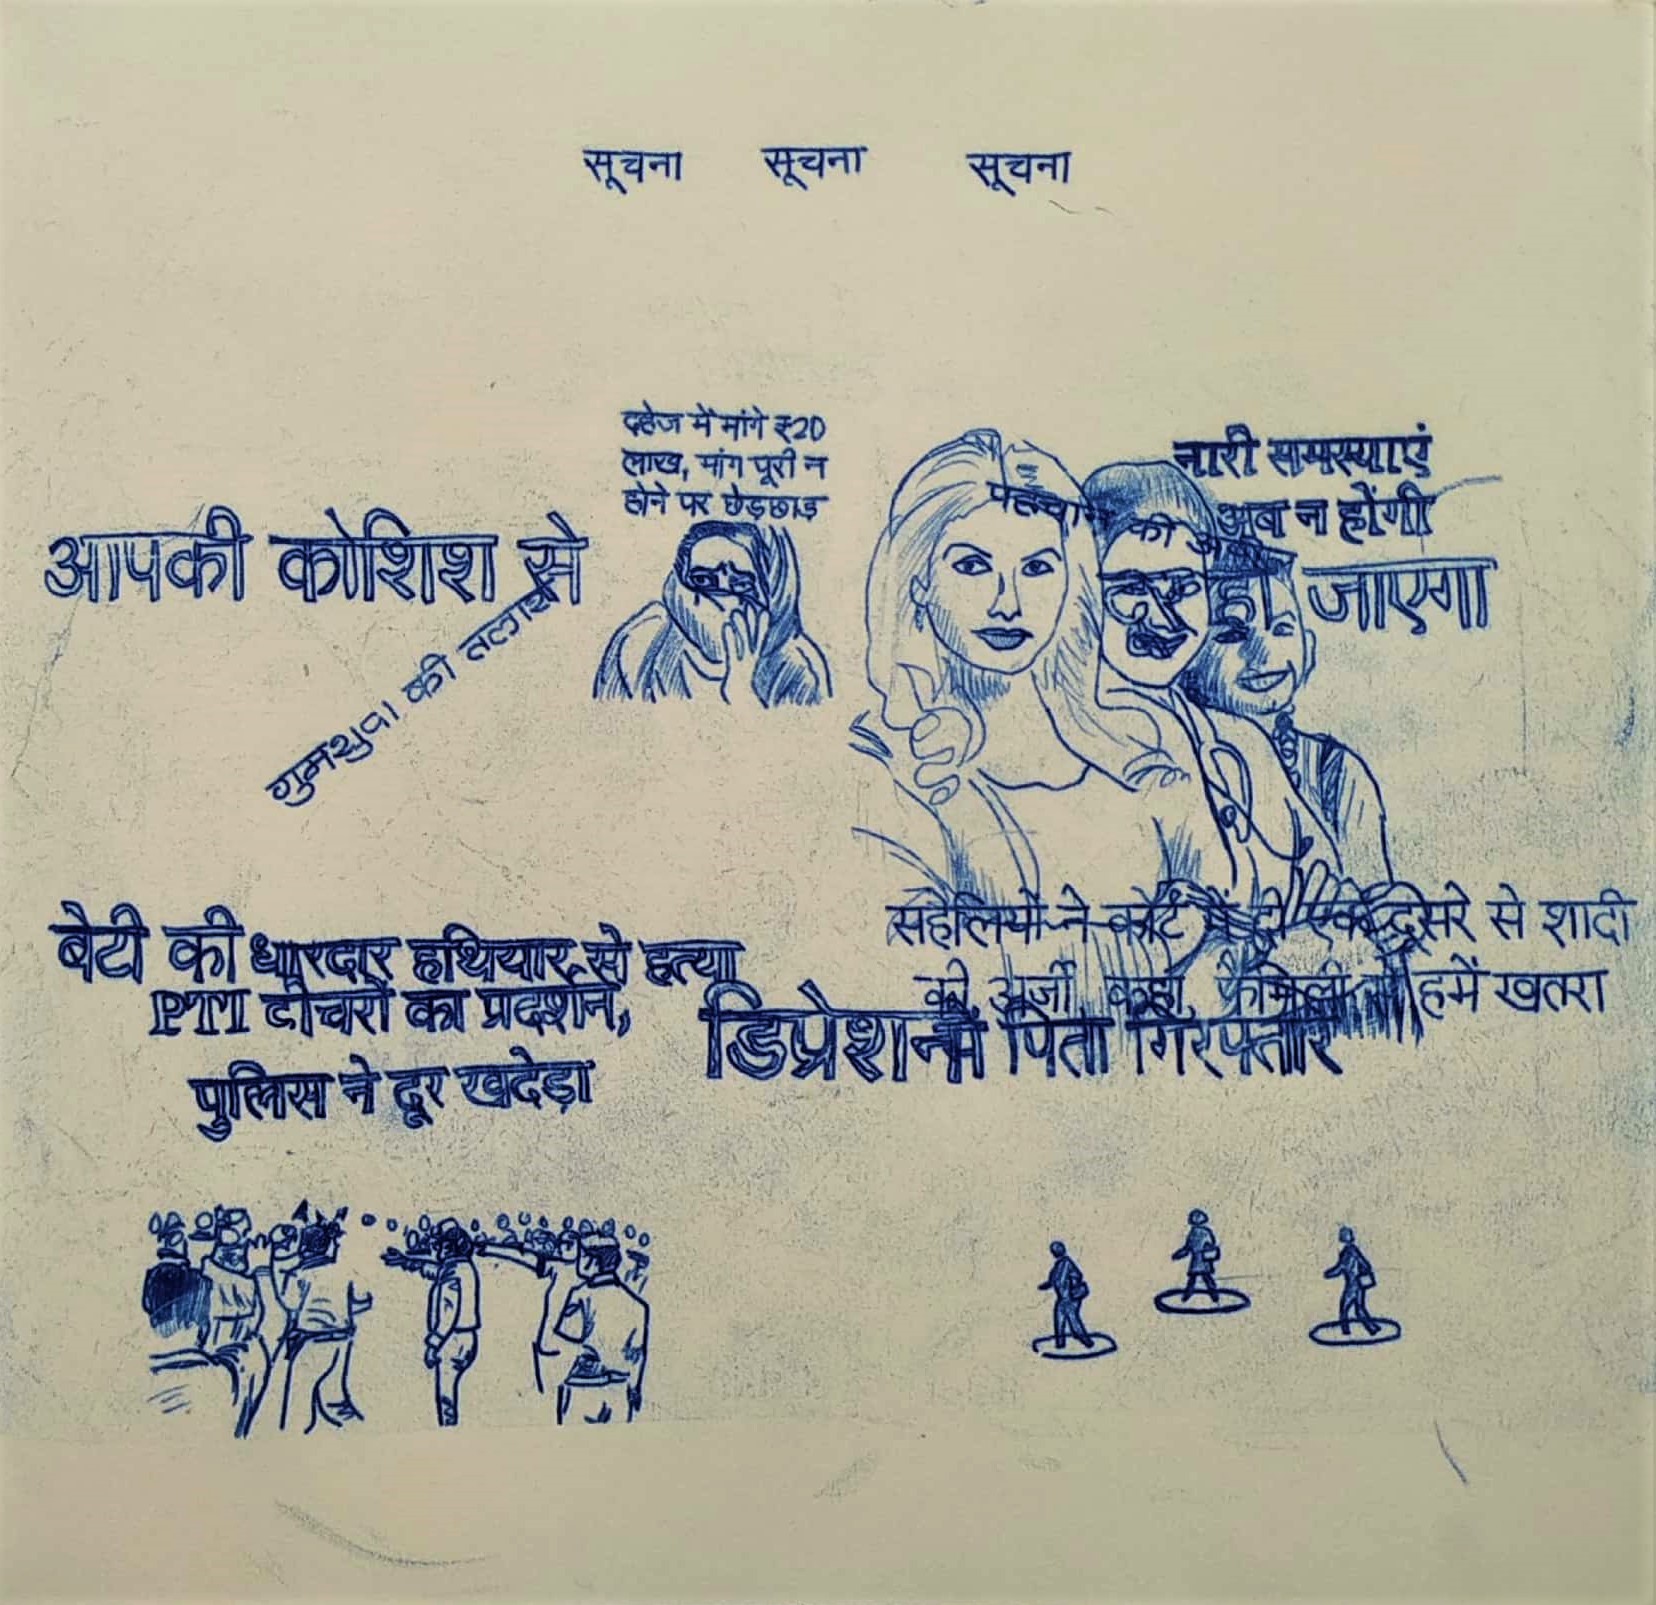 सूचना सूचना सूचना
दहेज में मांगे ₹20
लाख, मांग पूरी न
होने पर छेड़छाड़
नारी समस्याएं
अब न होंगी
पहचान की
आपकी कोशिश से
दूर हो जाएगा
गुमशुदा की तलाश
बेटी की धारदार हथियार से हत्या
PTI टीचरों का प्रदर्शन,
पुलिस ने दूर खदेड़ा
सहेलियों ने कोर्ट में दी एक दूसरे से शादी
की अर्जी कहा, फैमिली से हमें खतरा
डिप्रेशन में पिता गिरफ्तार